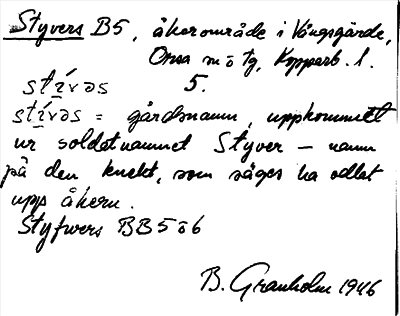 Styvers B5, åkerområde i Vångsgärde,
Orsa sn o tg, Kopparb. l.
stɪ́vəs 5.
stɪ́vəs = gårdsnamn, uppkommet
ur soldatnamnet Styver – namn
på den knekt, som säges ha odlat
upp åkern.
Styfwers BB5 o 6
B. Granholm 1946